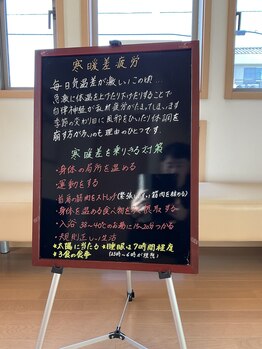 寒暖差疲労
毎日気温差が激しいこの頃…
急激に体温を上げたり下げたりすることで
自律神経が乱れ疲労がたまってしまいます
季節の変わり目に風邪をひいたり体調を
崩す方が多いのも理由のひとつです。
寒暖差を乗りきる対策
・身体の局所を温める
・運動をする
・首肩の筋肉をストレッチ(緊張している筋肉を緩める)
・身体を温める食べ物を
・入浴 38〜40℃のお湯に15〜20分つかる
・規則正しい生活
*太陽に当たる *睡眠は7時間程度
*3食の食事